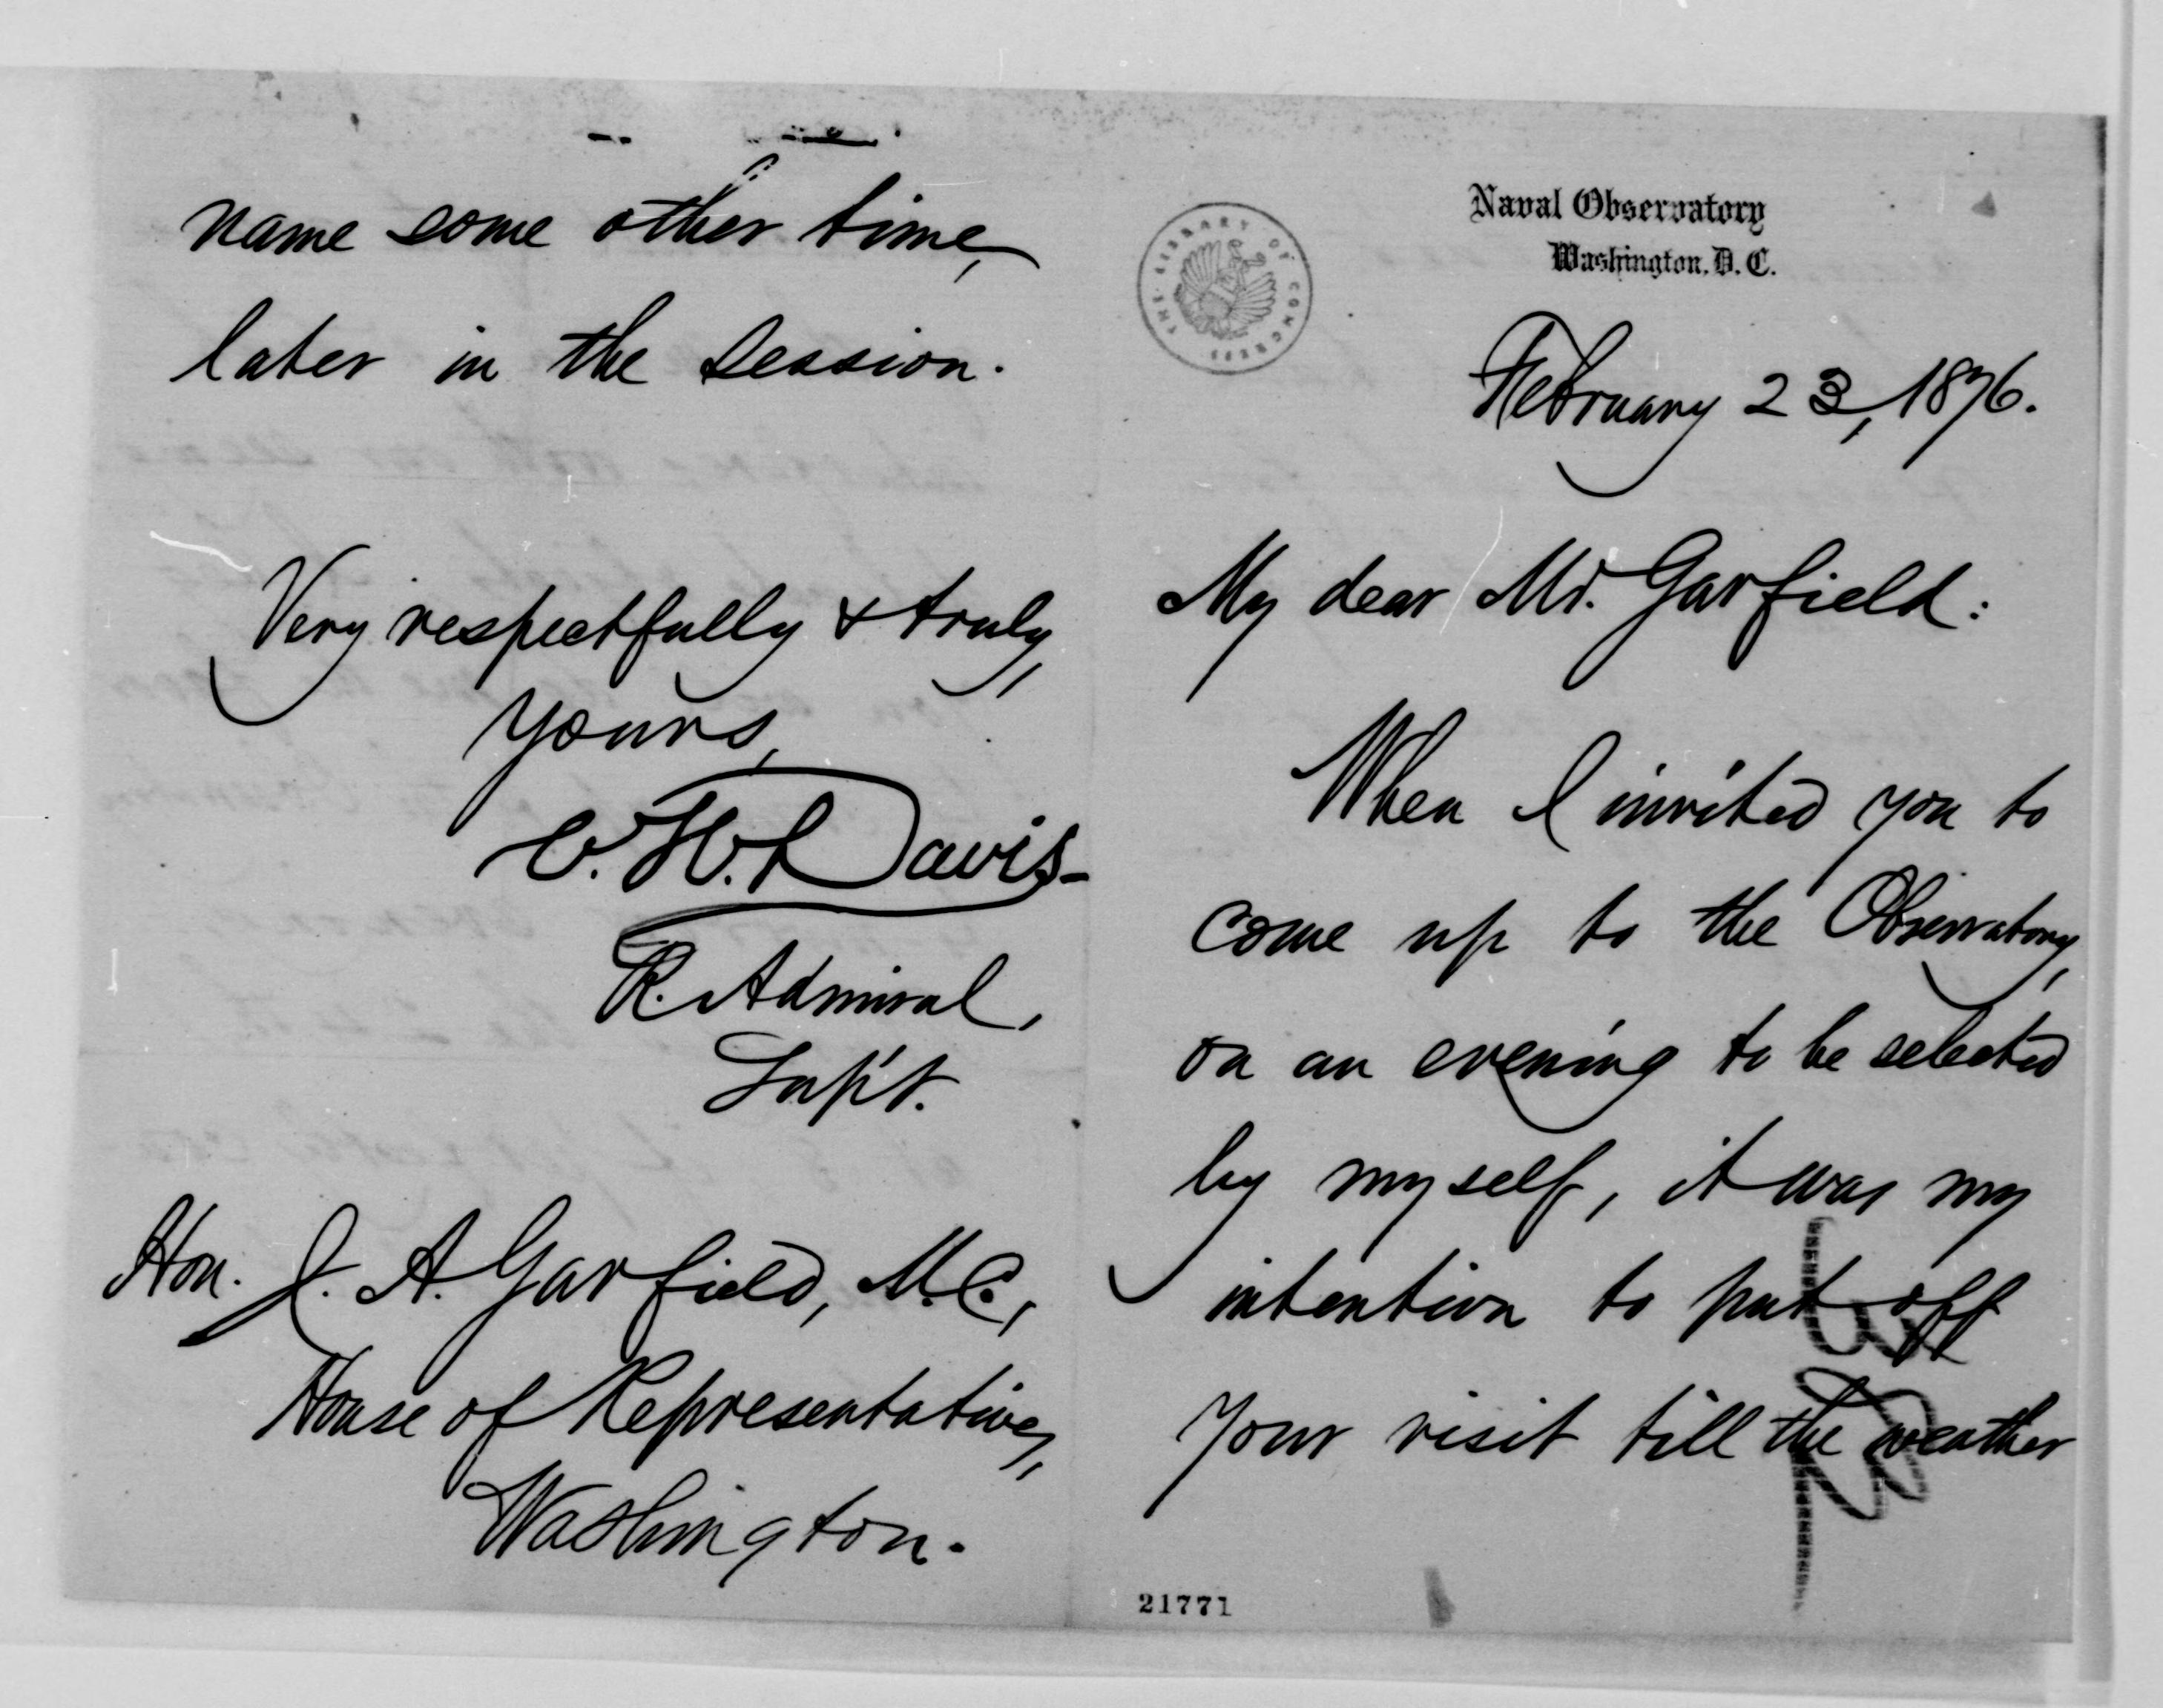 Naval Observatory
Washington, D. C.
February 23, 1876.
My dear Mr. Garfield:
When I invited you to
come up to the Observatory,
on an evening to be selected
by myself, it was my
intention to put off
your visit till the weather
21771
THE LIBRARY OF CONGRESS
name some other time,
later in the session.
Very respectfully & truly,
yours,
C. H. Davis
R. Admiral,
Sup't.
Hon. J. A. Garfield, M.C.,
House of Representatives,
Washington.